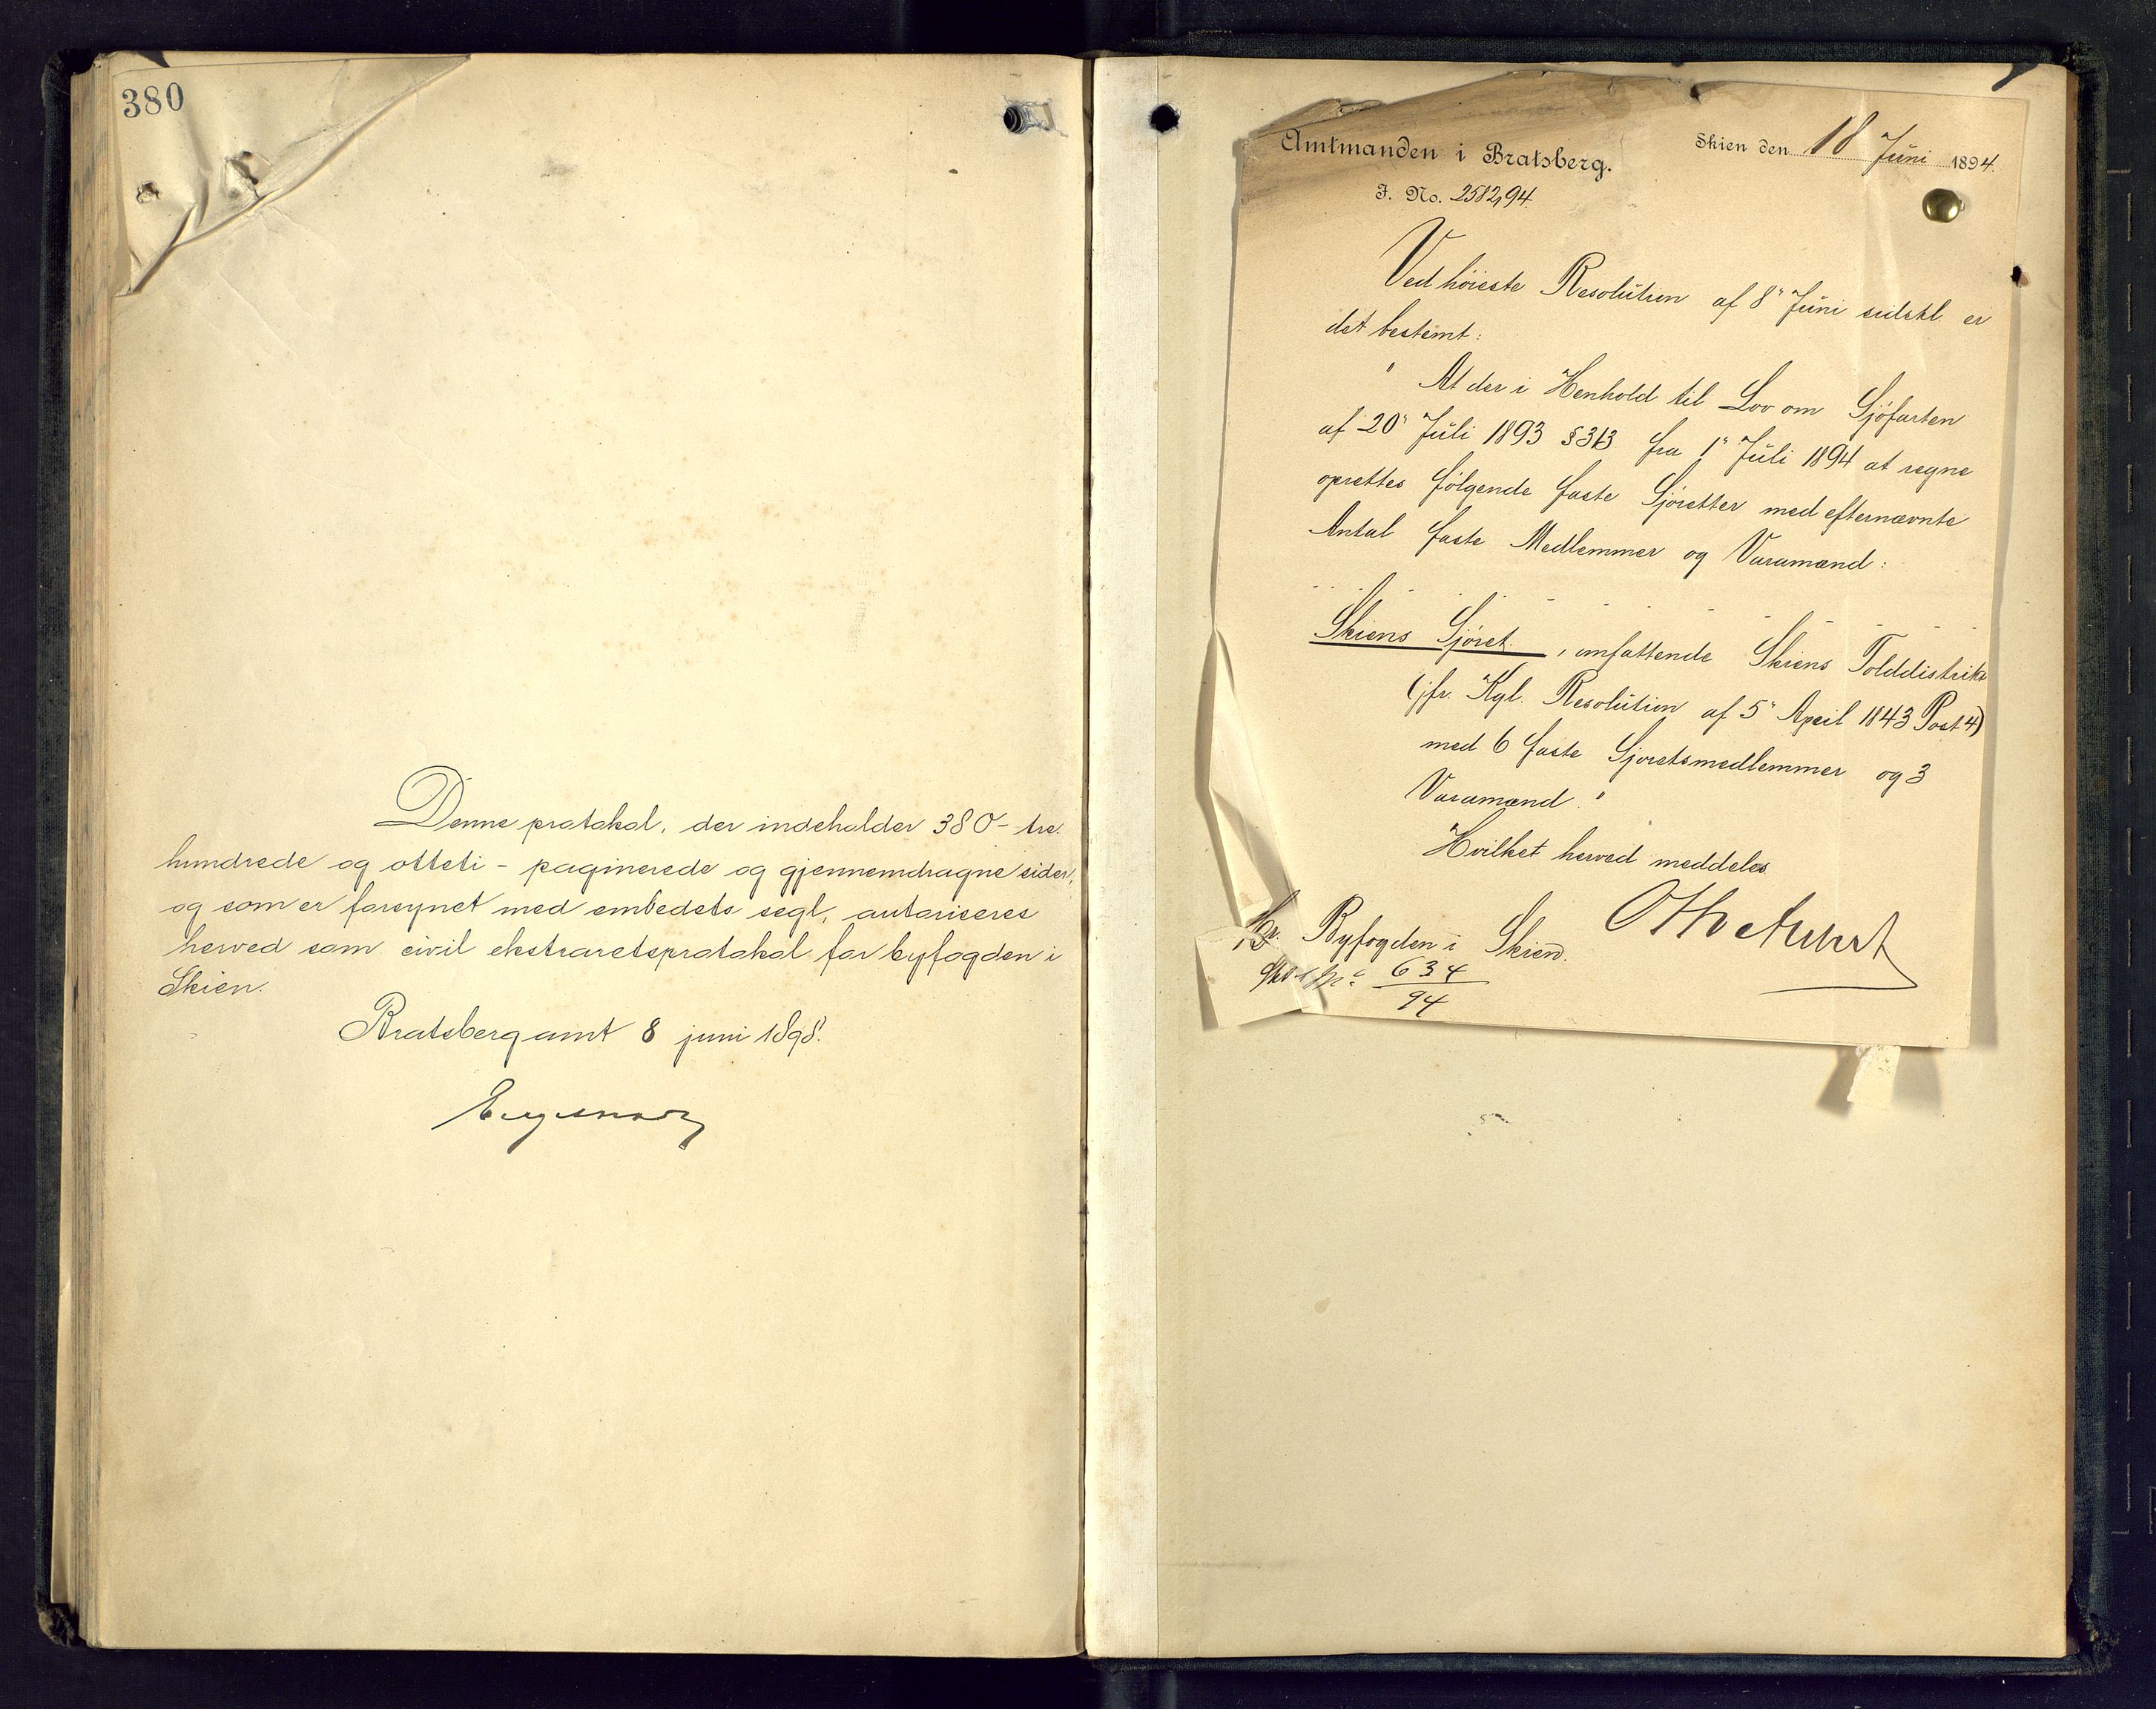 380
Denne protokol, der indeholder 380 - tre-
hundrede og otteti - paginerede og gjennemdragne sider,
og som er forsynet med embedets segl, autoriseres
herved som civil ekstraretsprotokol for byfogden i
Skien.
Bratsberg amt 8 juni 1898.
Amtmanden i Bratsberg.
Skien den 18 Juni 1894.
J. No. 2582,94.
Ved höieste Resolution af 8" Juni sidstl. er
det bestemt:
" At der i Henhold til Lov om Sjöfarten
af 20" Juli 1893 § 313 fra 1" Juli 1894 at regne
oprettes fölgende faste Sjöretter med efternævnte
Antal faste Medlemmer og Varamænd:
Skiens Sjöret, omfattende Skiens Tolddistrikt
(jfr. Kgl. Resolution af 5" April 1843 Post 4)
med 6 faste Sjöretsmedlemmer og 3
Varamænd."
Hvilket herved meddeles.
Otto Aubert
Hr. Byfogden i Skien.
634
94